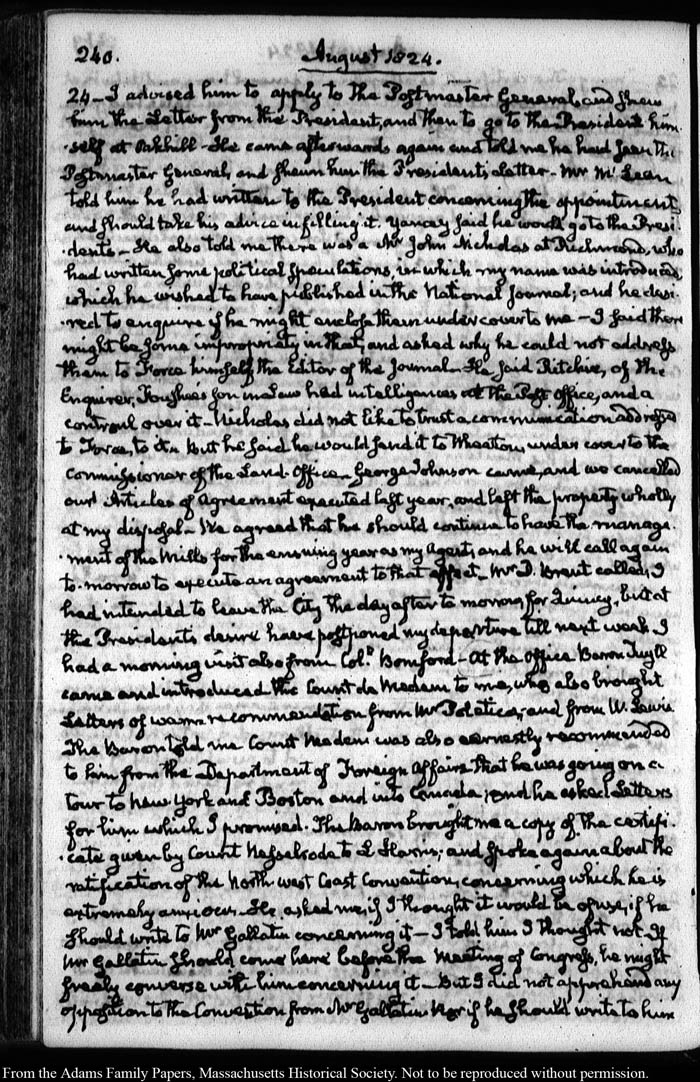 240.
August 1824.
24 — I advised him to apply to the Postmaster General, and shew
him the Letter from the President, and then to go to the President him-
-self at Oakhill — He came afterwards again and told me he had seen the
Postmaster General, and shewn him the President's Letter — Mr McLean
told him he had written to the President concerning the appointment,
and should take his advice in filling it. Yancey said he would go to the Presi-
-dents — He also told me there was a Mr John Nicholas at Richmond, who
had written some political speculations, in which my name was introduced,
which he wished to have published in the National Journal; and he desi-
-red to enquire if he might enclose them under cover to me — I said there
might be some impropriety in that, and asked why he could not address
them to Force himself, the Editor of the Journal — He said Ritchie, of the
Enquirer, Foushee's Son in Law had intelligences at the Post Office, and a
controul over it — Nicholas did not like to trust a communication addressed
to Force, to it — But he said he would send it to Wheaton, under cover to the
Commissioner of the Land-Office — George Johnson came, and we cancelled
our Articles of Agreement executed last year, and left the property wholly
at my disposal — We agreed that he should continue to have the manage-
-ment of the Mills for the ensuing year as my Agent, and he will call again
to-morrow to execute an agreement to that effect — Mr D. Brent called, I
had intended to leave the City the day after to morrow for Quincy, but at
the President's desire have postponed my departure till next week. I
had a morning visit also from Coll. Bomford — At the Office Baron Tuyll
came and introduced the Count de Medem to me, who also brought
Letters of warm recommendation from Mr Poletica, and from W. Lewis
The Baron told me Count Medem was also earnestly recommended
to him from the Department of Foreign Affairs that he was going on a
tour to New York and Boston and into Canada; and he asked Letters
for him which I promised. The Baron brought me a copy of the certifi-
-cate given by Count Nesselrode to L Harris; and spoke again about the
ratification of the North-west Coast Convention, concerning which he is
extremely anxious. He asked me, if I thought it would be of use, if he
should write to Mr Gallatin concerning it — I told him I thought not. If
Mr Gallatin should come here before the meeting of Congress, he might
freely converse with him concerning it — But I did not apprehend any
opposition to the Convention from Mr Gallatin. Nor if he should write to him
From the Adams Family Papers, Massachusetts Historical Society. Not to be reproduced without permission.